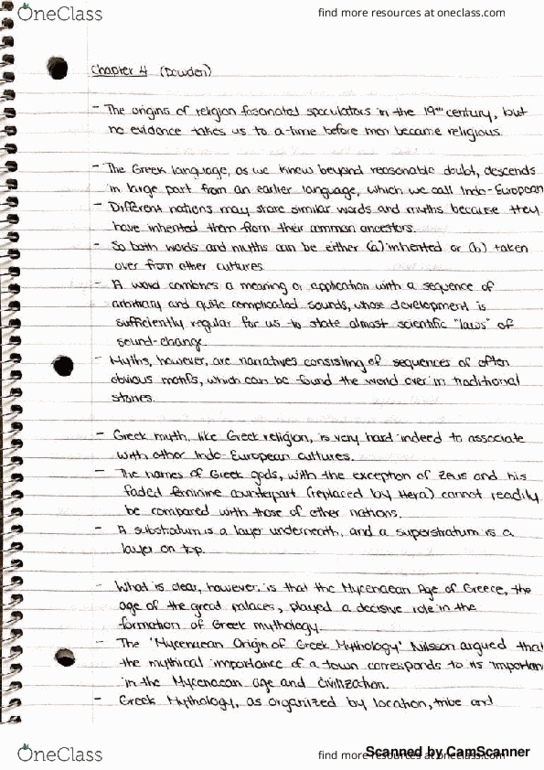 OneClass
find more resources at oneclass.com
Chapter 4 (Dowden)
- The origins of religion fasanated speculators in the 19th century, but
no evidence takes us to a time before men became religious.
- The Greek language, as we knew beyond reasonable doubt, descends
in large part from an earlier language, which we call Indo-European
- Different nations may share similar words and myths because they
have inherited them from their common ancestors.
- So both words and myths can be either (a) inherited or (b) taken
over from other cultures
- A word combines a meaning or application with a sequence of
arbitrary and quite complicated sounds, whose development is
sufficiently regular for us to state almost scientific "laws" of
sound-change.
- Myths, however, are narratives consisting of sequences of often
obvious motifs, which can be found the world over in traditional
stories.
- Greek myth, like Greek religion, is very hard indeed to associate
with other Indo-European cultures.
- The names of Greek gods, with the exception of Zeus and his
faded feminine counterpart (replaced by Hera) cannot readily
be compared with those of other nations.
- A substratum is a layer underneath, and a superstratum is a
layer on top.
- What is clear, however, is that the Mycenaean Age of Greece, the
age of the great palaces, played a decisive role in the
formation of Greek mythology.
- The 'Mycenaean Origin of Greek Mythology' Nilsson argued that
the mythical importance of a town corresponds to its importan
in the Mycenaean age and civilization.
- Greek Mythology, as organized by location, tribe and
OneClass
find more resources at oneclass.com
Scanned by CamScanner